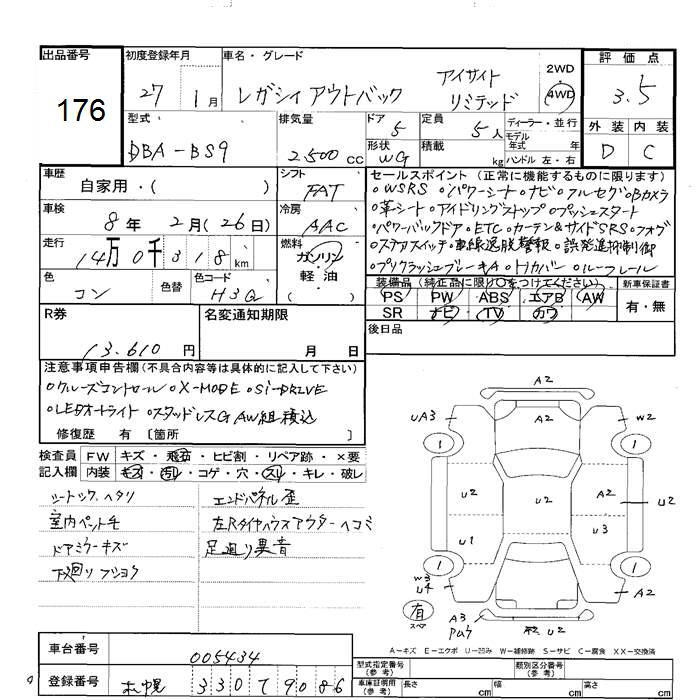 出品番号
176
初度登録年月
27 1月
車名・グレード
レガシィアウトバック
アイサイト
リミテッド
2WD
4WD
評価点
3.5
外装 内装
D C
型式
DBA-BS9
排気量
2.500 cc
ドア
5
定員
5人
形状
WG
積載
kg
ディーラー・並行
モデル
年式 年
ハンドル 左・右
車歴
自家用・( )
シフト
FAT
車検
8年 2月(26日)
冷房
AAC
走行
14万0千318km
燃料
ガソリン
軽・油
( )
色
コン
色替
色コード
H3Q
セールスポイント (正常に機能するものに限ります)
○WSRS ○パワーシート○ナビ○フルセグ○Bカメラ
○革シート○アイドリングストップ ○プッシュスタート
○パワーバックドア○ETC○カーテン&サイドSRS○フォグ
○ステアスイッチ○車線逸脱警報○誤発進抑制御
○プリクラッシュブレーキA○Hカバー○ルーフレール
装備品(純正品に限り○をつけてください)
PS PW ABS エアB AW
SR ナビ TV カワ
新車保証書
有・無
後日品
R券
13.610 円
名変通知期限
月 日
注意事項申告欄(不具合内容等は具体的に記入して下さい)
○クルーズコントロール○X-MODE○SI-DRIVE
○LEDオートライト ○スタッドレスG AW組積込
修復歴 有 〔箇所 〕
検査員
記入欄
FW キズ・飛石・ヒビ割・リペア跡・×要
内装 キズ・汚れ・コゲ・穴・スレ・キレ・破レ
シートシワ、ヘタリ
室内ペット毛
ドアミラーキズ
下廻りフショク
エンドパネル歪
左Rタイヤハウスアウターヘコミ
足廻り異音
A2
UA3 A2 W2
1 1
U2 U2 A2 U2
U1 U3
1 1
W3
U4 A2
有
スペア
A3
U2
A-キズ E-エクボ U-凹み W-補修跡 S-サビ C-腐食 XX-交換済
車台番号
005434
登録番号
札幌 330 て 9086
型式指定番号
(参考)
類別区分番号
(参考)
車庫証明用
(参考)
長さ cm 幅 cm 高さ cm